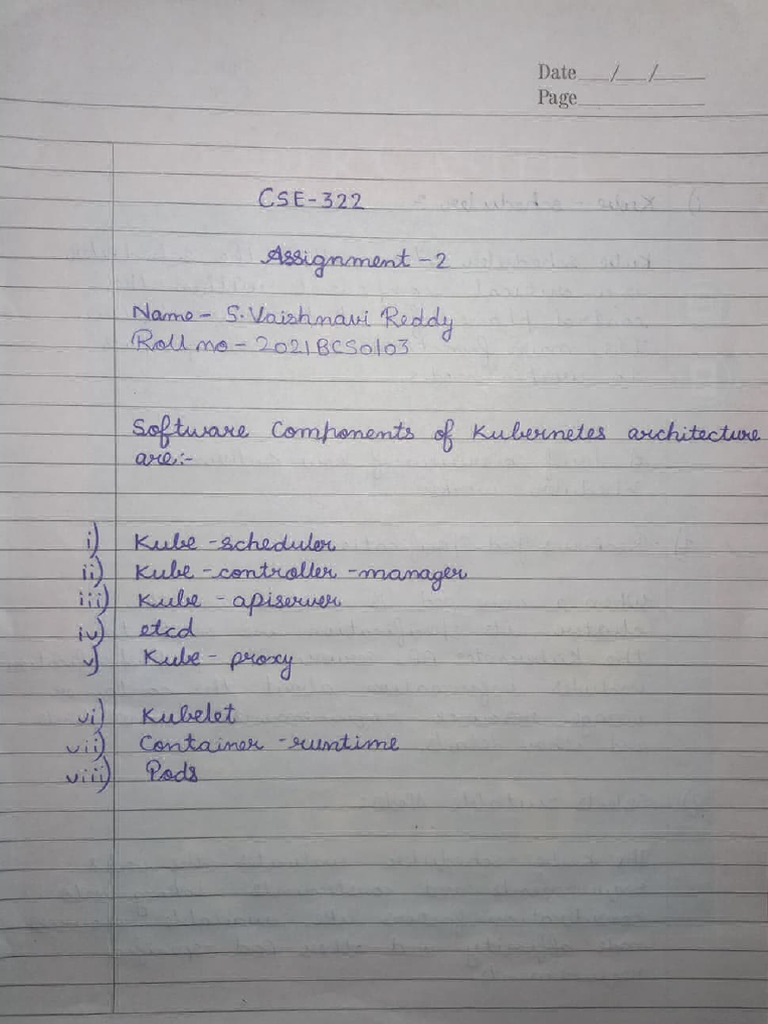 Date __/__/____
Page __________
CSE-322
Assignment-2
Name- S.Vaishnavi Reddy
Roll no- 2021BCS0103
Software Components of Kubernetes architecture
are:-
i) Kube-scheduler
ii) Kube-controller-manager
iii) Kube-apiserver
iv) etcd
v) Kube-proxy
vi) Kubelet
vii) Container-runtime
viii) Pods